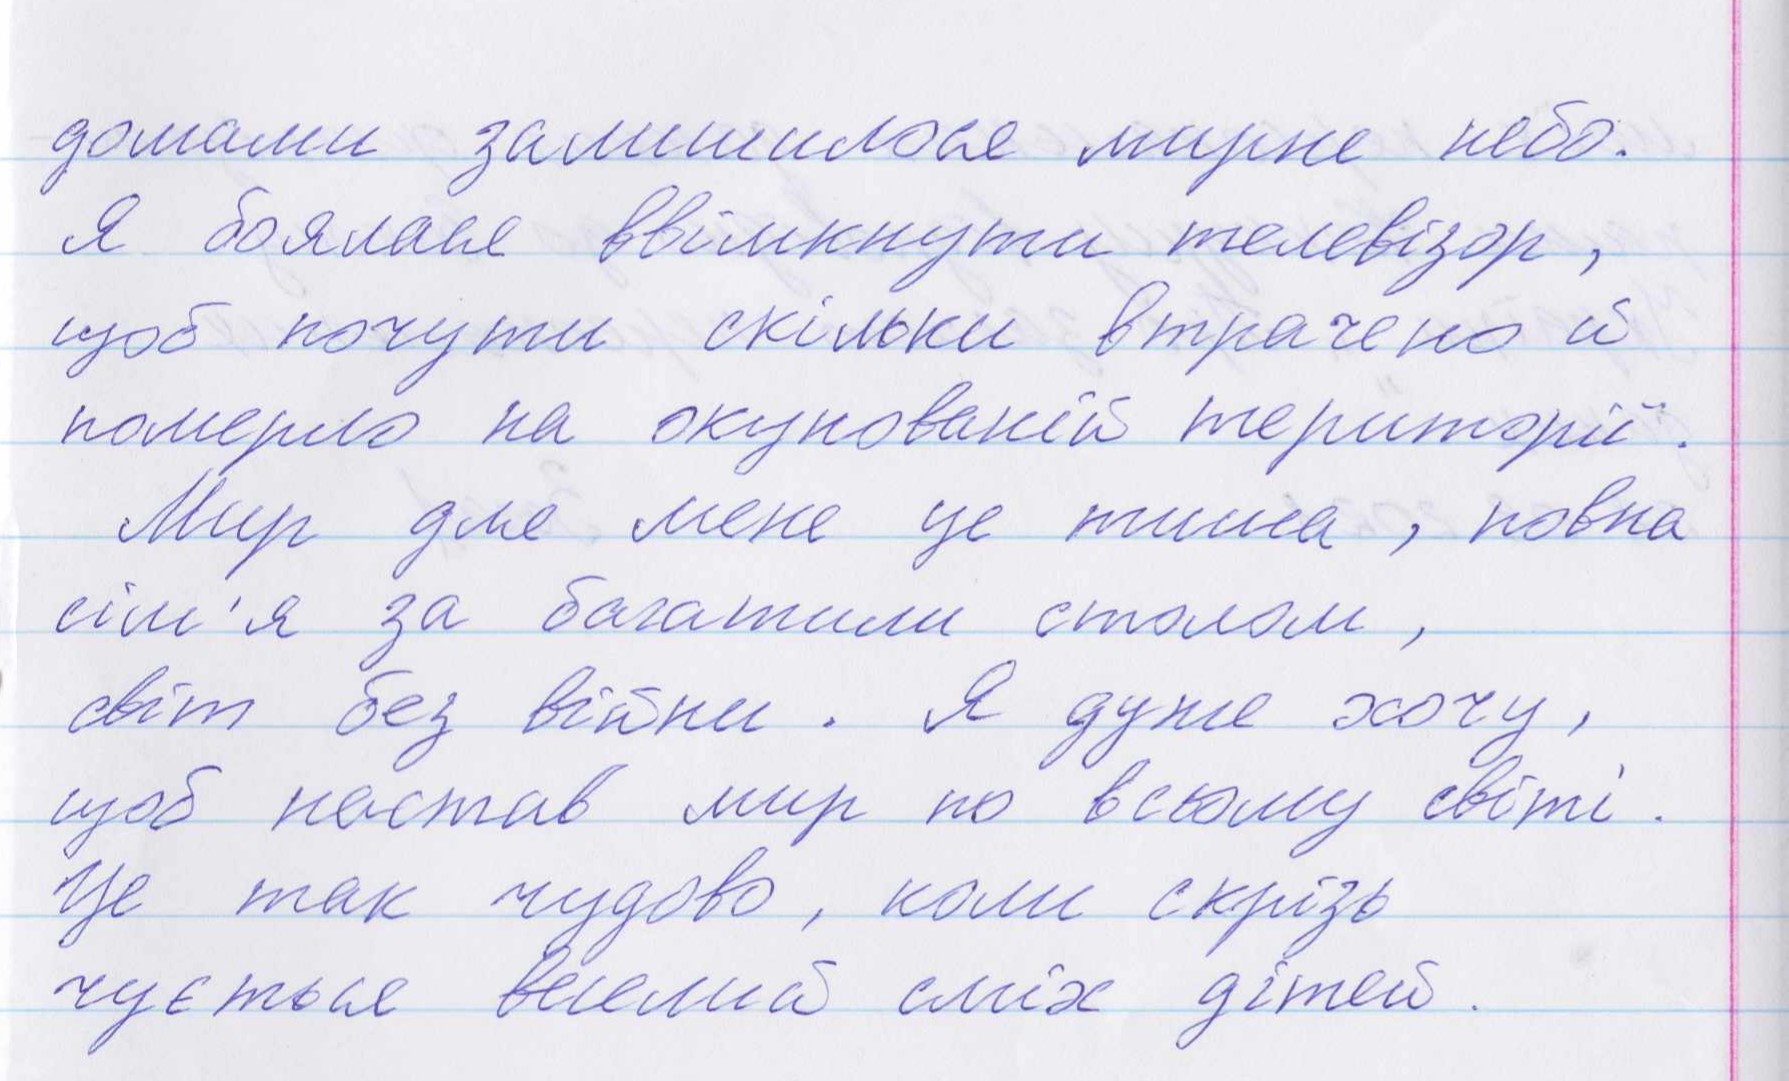 домами залишилося мирне небо.
Я боялася ввімкнути телевізор,
щоб почути скільки втрачено й
померло на окупованій території.
Мир для мене це тиша, повна
сім'я за багатим столом,
світ без війни. Я дуже хочу,
щоб настав мир по всьому світі.
Це так чудово, коли скрізь
чується веселий сміх дітей.